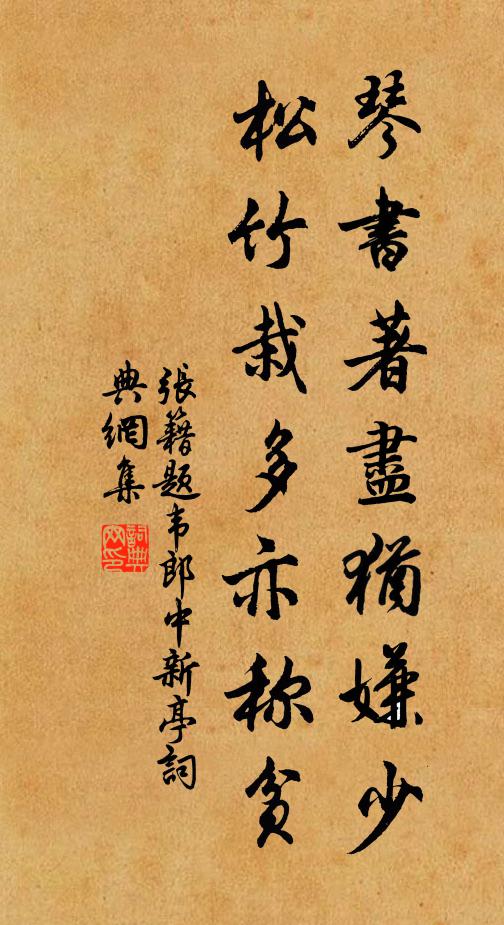 琴書著盡猶嫌少
松竹栽多亦称貧
張籍题韦郎中新亭詞
典網集
詞典
网印